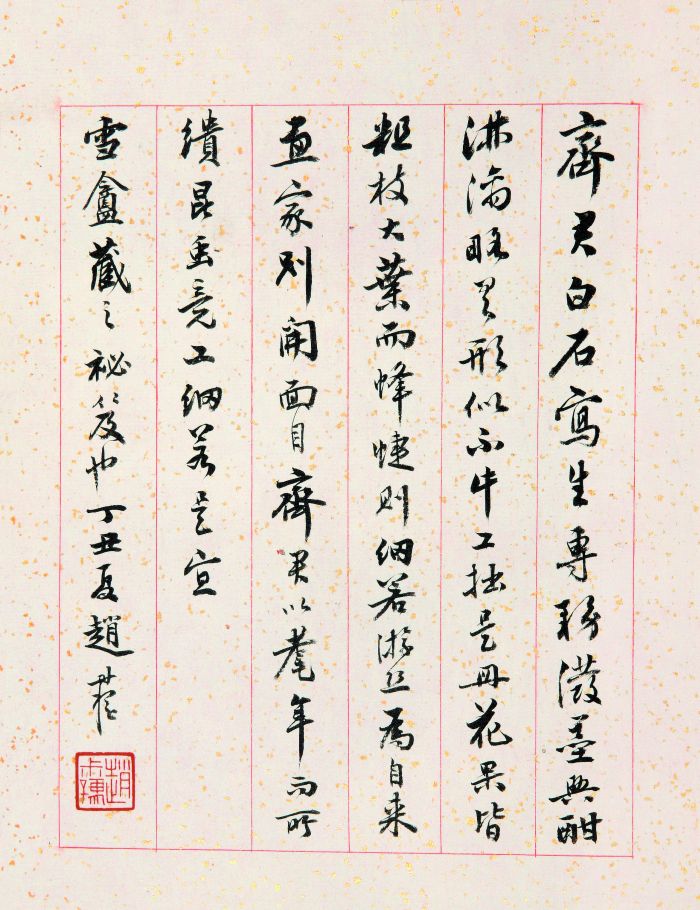 齊君白石寫生專務潑墨興酣
淋漓略具形似不計工拙是冊花果皆
粗枝大葉而蜂蜨則細若游絲為自來
畫家別開面目齊君以耄年而所
繢昆虫竟工細若是宜
雪盦藏之祕笈也丁丑夏趙